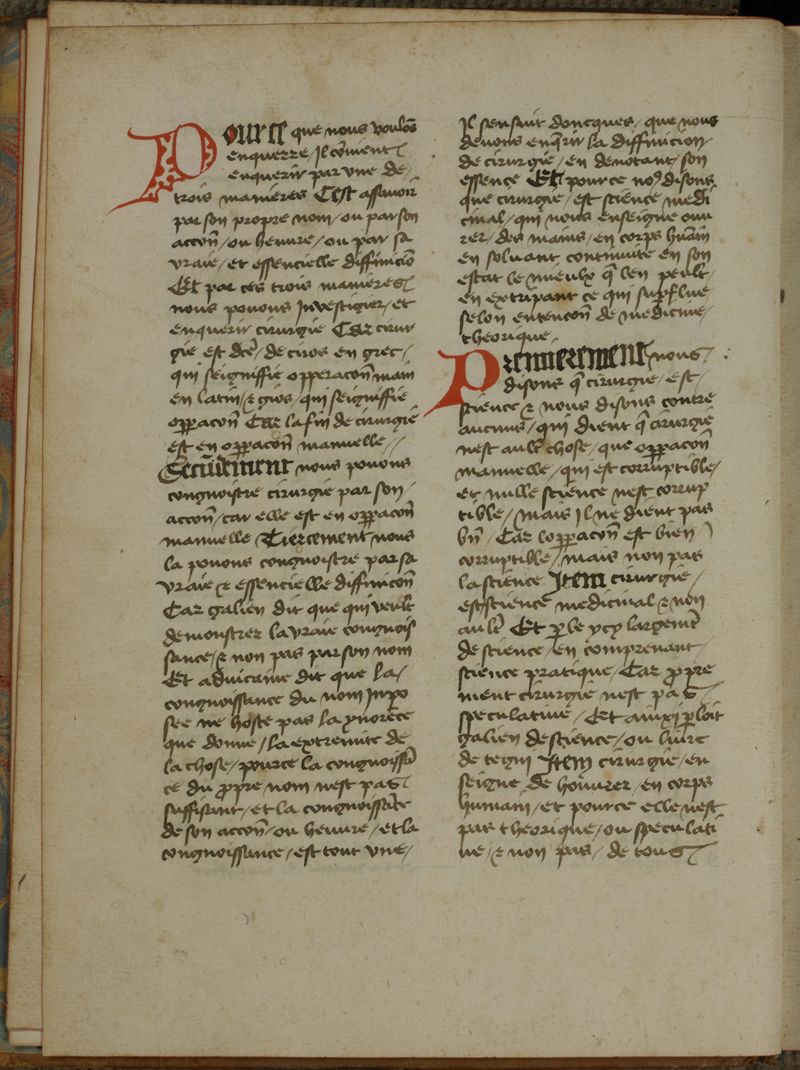 Pource que nous voulos̄
enquerre / Il cōuient
enquerir par vne de /
trois manieres Cest assauoir
par son propre nom / ou par son
accoñ / ou heuure / ou par sa
vraie / et essencielle diffinicio̅
Et par ces trois manieres
nous pouons Inuestiguer / et
enquerir cirurgie Car cirur
gie est dc̅e / de ciros en grec /
qui seigniffie opperacoñ main
en latin / ⁊ gios / qui seigniffie
oꝑꝑacoñ Car la fin de cirurgie
est en oꝑꝑacoñ manuelle //
Secūdement nous pouons
congnoistre cirurgie par son /
accoñ / car elle est en oꝑꝑacoñ
manuelle Tiercement nous
la pouons congnoistre par sa
vraie ⁊ essencielle diffinicoñ
Car galien dit que qui veult
demonstrer la vraie congnois
sance / ⁊ non pas par son nom
Et aduicanne dit que la /
congnoissance du nom Inpo
see ne hoste pas la ynorēce
que donne / la extremite de
la chose / pource la congnoissā
ce du ꝓpre nom nest pas
suffisant / et la congnoissāce
de son accoñ / ou heuure / et la
congnoissance / est tout vne /
Il sensuit doncques / que nous
deuons enq̄rir la diffinicion
de cirurgie / en denotant / son
essence Et pource noꝰ disons
que cirurgie / est science medi
cinal / qui nous enseigne ouu
rer / des mains / en corps hūain
en soluant continuite en son
estat le mieulx q̄ len peult /
en extirpant ce qui suꝑflue
selon entencoñ de medicine /
theorique
Premierement nous
disons q̄ cirurgie / est /
science ⁊ nous disons contre
aucuns / qui dient q̄ cirurgie
nest aul̄t chose / que oꝑꝑacoñ
manuelle / qui est corruptible /
et nulle science nest corrup
tible / mais Il ne dient pas
bn̄ / Car loꝑꝑacoñ est bien
corruptible / mais non pas
la science Item cirurgie /
est science medicinal ⁊ non
aul̄t Et ꝑle ycy largemt̄
de science / en comprenant
science pratique / Car ꝓpre
ment cirurgie nest pas
speculatiue / Et ainxi ꝑloit
galien de science / ou liure
de tegni Item cirurgie / en
seigne de hoūurer / en corps
humain / et pource elle nest
pas theorique / ou speculati
ue / ⁊ non pas / de tous